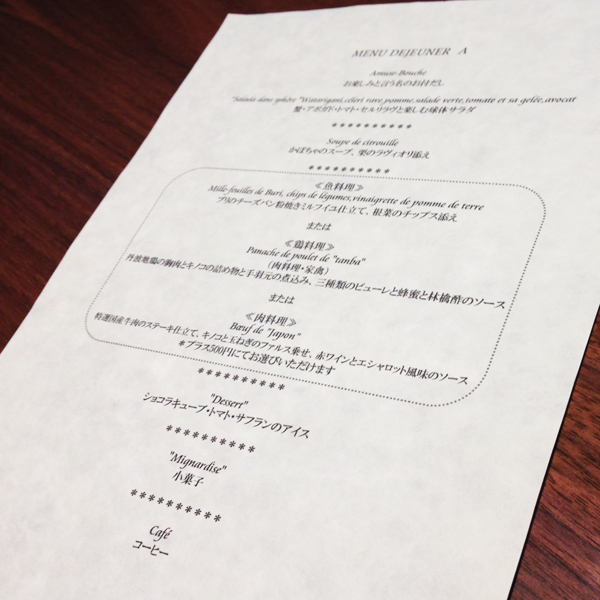 MENU DEJEUNER A
Amuse-Bouche
お楽しみと言う名のお付だし
"Salade dans sphère "Watarigani,céléri rave,pomme,salade verte,tomate et sa gelée,avocat
蟹・アボガド・トマト・セルリラヴと楽しむ球体サラダ
**********
Soupe de citrouille
かぼちゃのスープ、栗のラヴィオリ添え
**********
≪魚料理≫
Mille-feuilles de Buri, chips de légumes,vinaigrette de pomme de terre
ブリのチーズパン粉焼きミルフイユ仕立て、根菜のチップス添え
または
≪鶏料理≫
Panache de poulet de "tanba"
(肉料理・家禽)
丹波地鶏の胸肉とキノコの詰め物と手羽元の煮込み、三種類のピューレと蜂蜜と林檎酢のソース
または
≪肉料理≫
Bœuf de "Japon"
特選国産牛肉のステーキ仕立て、キノコと玉ねぎのファルス乗せ、赤ワインとエシャロット風味のソース
*プラス500円にてお選びいただけます
**********
"Dessert"
ショコラキューブ・トマト・サフランのアイス
**********
"Mignardise"
小菓子
**********
Café
コーヒー